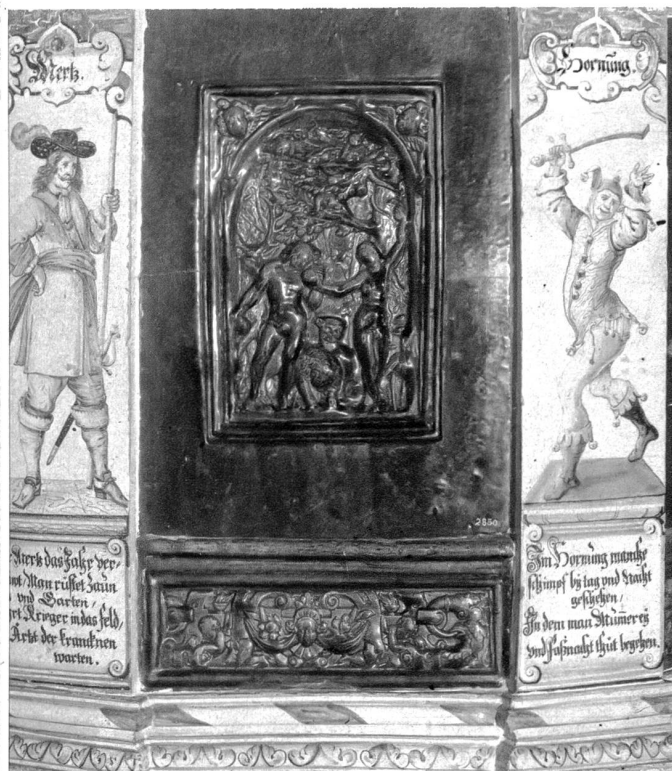 Mertz.
Mertz das Jahr ver-
Man rüstet Zaun
vnd Garten /
Krieger in das feld,
Artzt der krancknen
warten.
2850
Hornūng.
Im Hornūng manche
schimpf by tag vnd Nacht
geschehen,
In dem man Mūmerey
vnd Faßnacht thūt begehen.